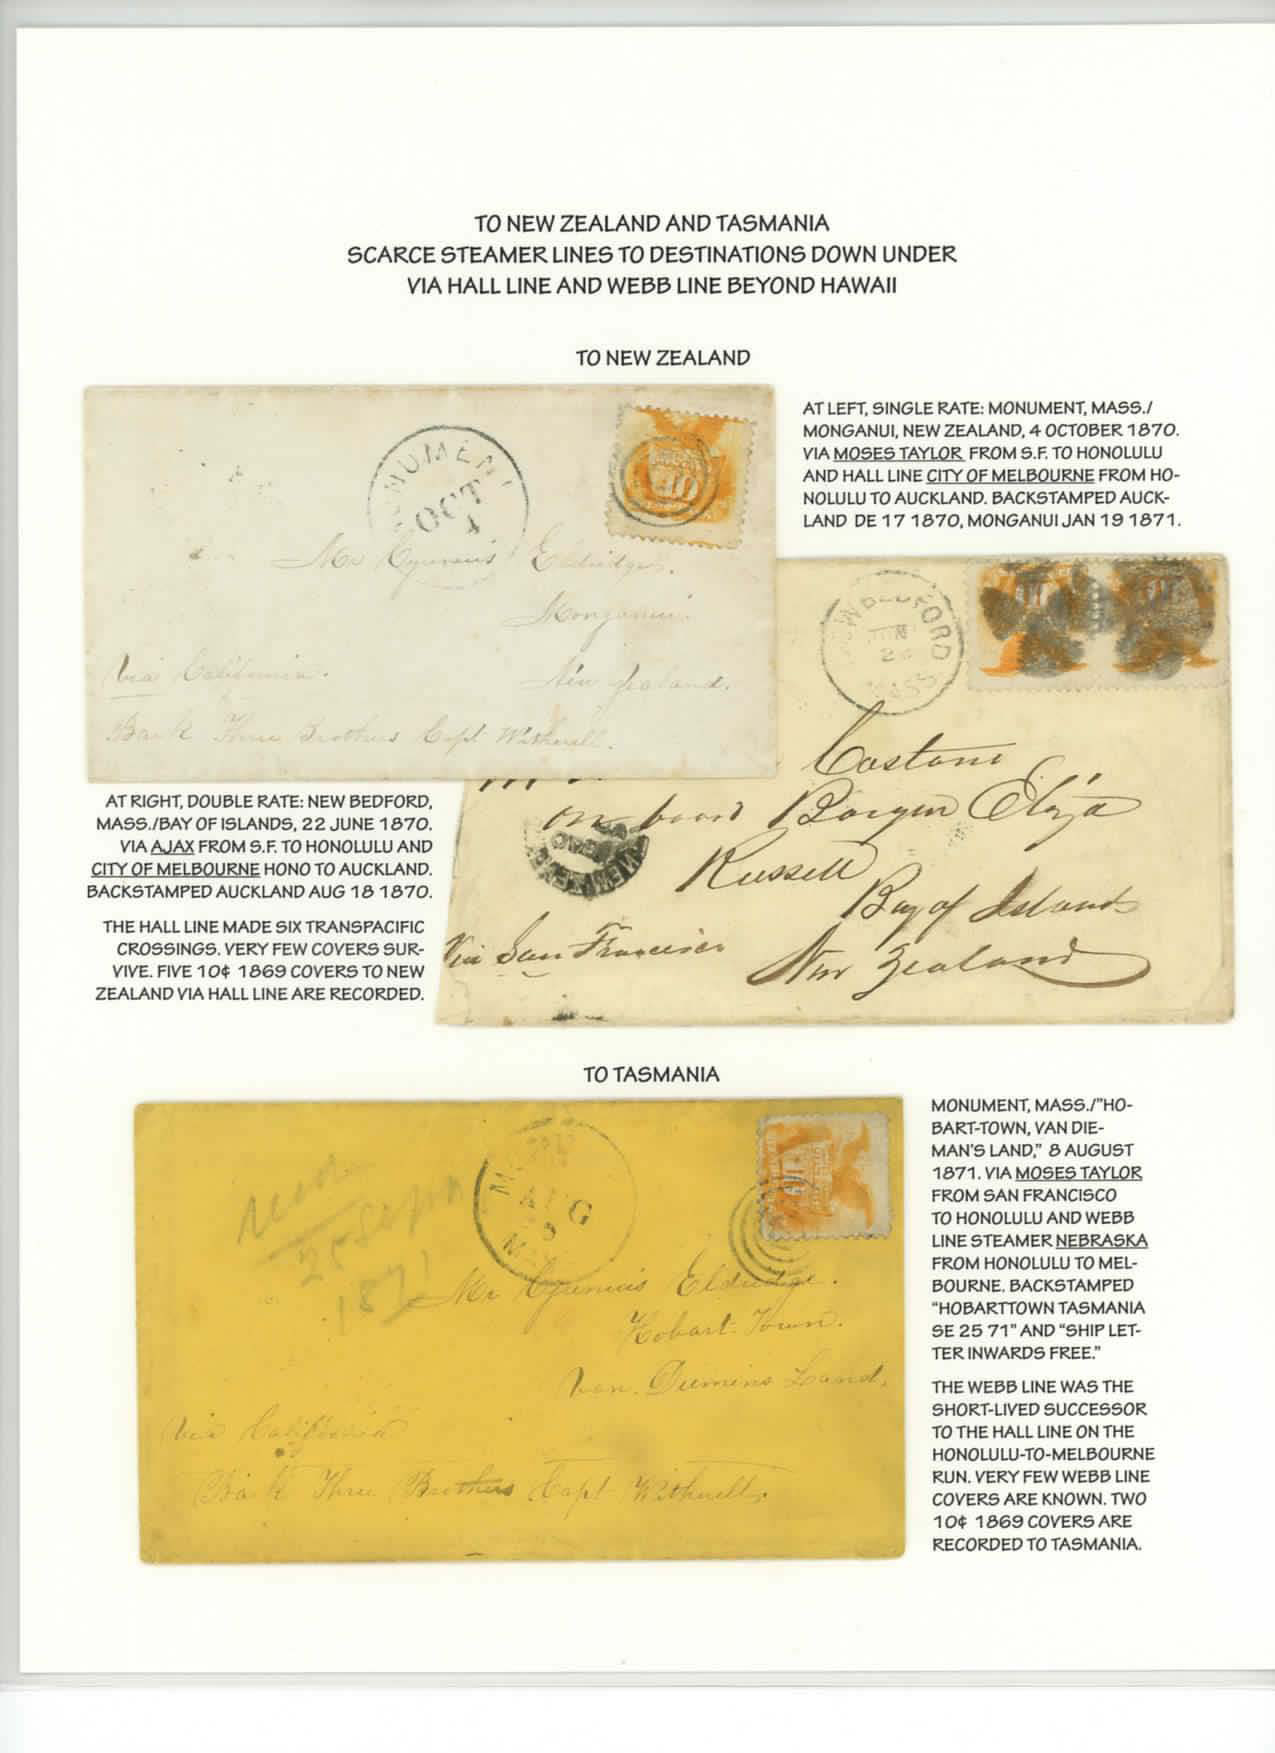 TO NEW ZEALAND AND TASMANIA
SCARCE STEAMER LINES TO DESTINATIONS DOWN UNDER
VIA HALL LINE AND WEBB LINE BEYOND HAWAII
TO NEW ZEALAND
MONUMENT
OCT
4
Mr Cyrenius Eldridge.
Monganui.
Via California.
New Zealand.
Bark Three Brothers Capt Witherell.
AT LEFT, SINGLE RATE: MONUMENT, MASS./
MONGANUI, NEW ZEALAND, 4 OCTOBER 1870.
VIA MOSES TAYLOR FROM S.F. TO HONOLULU
AND HALL LINE CITY OF MELBOURNE FROM HO-
NOLULU TO AUCKLAND. BACKSTAMPED AUCK-
LAND DE 17 1870, MONGANUI JAN 19 1871.
NEW BEDFORD
JUN
MASS
Costani
on board Barque Eliza
Russell
Bay of Islands
Via San Francisco
New Zealand
AT RIGHT, DOUBLE RATE: NEW BEDFORD,
MASS./BAY OF ISLANDS, 22 JUNE 1870.
VIA AJAX FROM S.F. TO HONOLULU AND
CITY OF MELBOURNE HONO TO AUCKLAND.
BACKSTAMPED AUCKLAND AUG 18 1870.
THE HALL LINE MADE SIX TRANSPACIFIC
CROSSINGS. VERY FEW COVERS SUR-
VIVE. FIVE 10¢ 1869 COVERS TO NEW
ZEALAND VIA HALL LINE ARE RECORDED.
TO TASMANIA
AUG
8
25 Sepm
1871
Mr Cyrenius Eldridge.
Hobart Town.
Van. Diemins Land.
Via California
Bark Three Brothers Capt Witherell.
MONUMENT, MASS./"HO-
BART-TOWN, VAN DIE-
MAN'S LAND," 8 AUGUST
1871. VIA MOSES TAYLOR
FROM SAN FRANCISCO
TO HONOLULU AND WEBB
LINE STEAMER NEBRASKA
FROM HONOLULU TO MEL-
BOURNE. BACKSTAMPED
"HOBARTTOWN TASMANIA
SE 25 71" AND "SHIP LET-
TER INWARDS FREE."
THE WEBB LINE WAS THE
SHORT-LIVED SUCCESSOR
TO THE HALL LINE ON THE
HONOLULU-TO-MELBOURNE
RUN. VERY FEW WEBB LINE
COVERS ARE KNOWN. TWO
10¢ 1869 COVERS ARE
RECORDED TO TASMANIA.